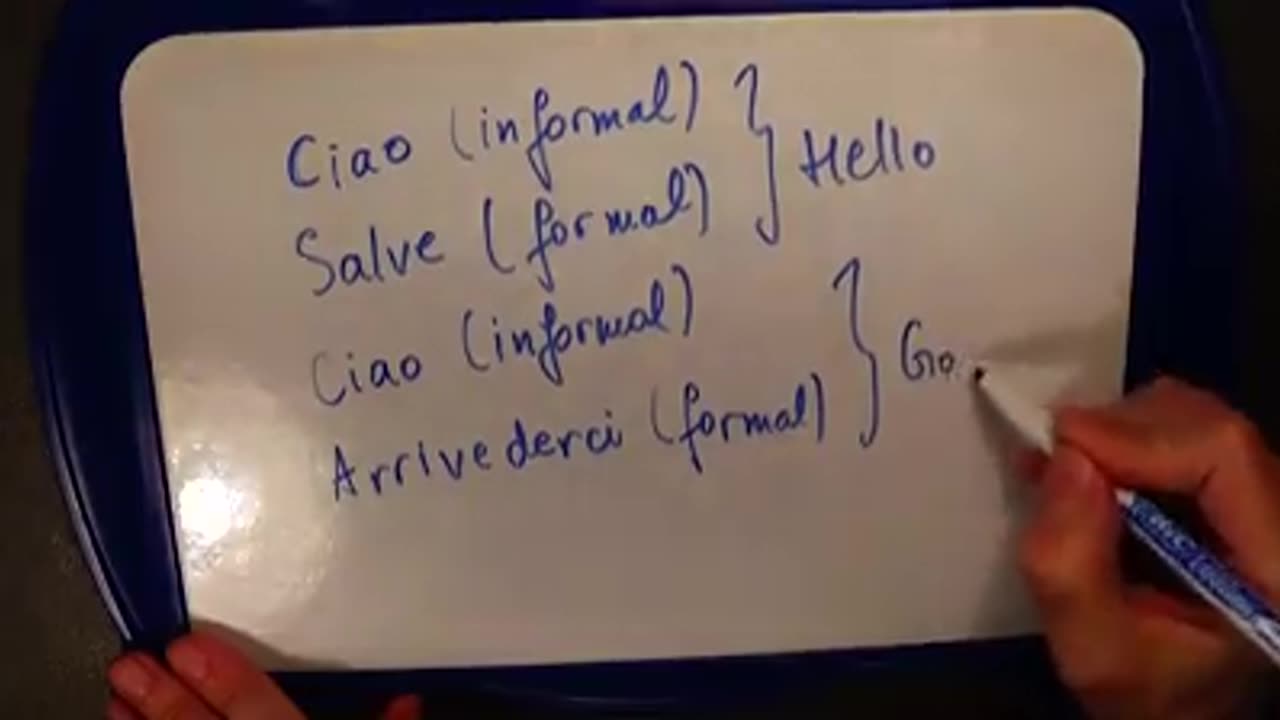 Ciao (informal)
Salve (formal)
} Hello
Ciao (informal)
Arrivederci (formal)
} Go